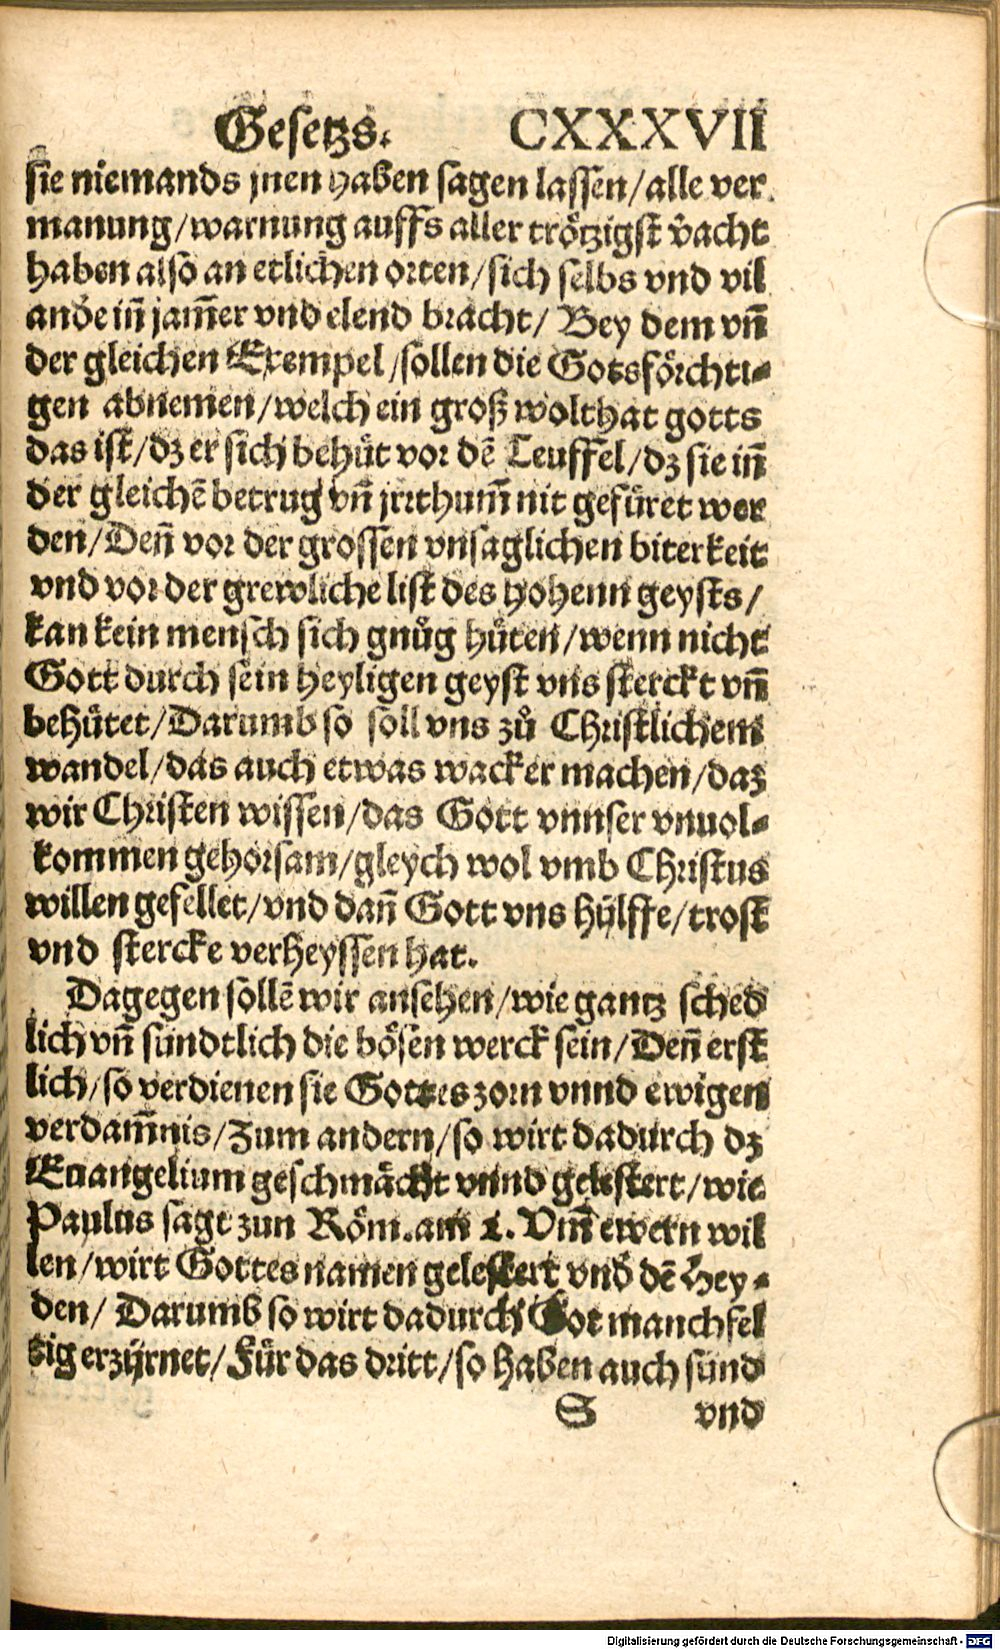 Gesetzs. CXXXVII
sie niemands jnen haben sagen lassen/alle ver
manung/warnung auffs aller trötzigst v̄acht
haben also an etlichen orten/sich selbs vnd vil
and̄e in̄ jam̄er vnd elend bracht/ Bey dem vn̄
der gleichen Exempel/sollen die Gotsförchti-
gen abnemen/welch ein groß wolthat gotts
das ist/dz er sich behüt vor dē Teuffel/dz sie in̄
der gleichē betrug vn̄ jrrthum̄ nit gefüret wer
den/Den̄ vor der grossen vnsaglichen biterkeit
vnd vor der grewliche list des hohenn geysts/
kan kein mensch sich gnůg hüten/wenn nicht
Gott durch sein heyligen geyst vns sterckt vn̄
behütet/Darumb so soll vns zů Christlichem
wandel/das auch etwas wacker machen/daz
wir Christen wissen/das Gott vnnser vnuol-
kommen gehorsam/gleych wol vmb Christus
willen gefellet/vnd dan̄ Gott vns hülffe/trost
vnd stercke verheyssen hat.
Dagegen sollē wir ansehen/wie gantz sched
lich vn̄ sündtlich die bösen werck sein/Den̄ erst
lich/so verdienen sie Gottes zorn vnnd ewigen
verdam̄nis/Zum andern/so wirt dadurch dz
Euangelium geschmächt vnnd gelestert/wie
Paulus sagt zun Röm.am 2. Vm̄ ewern wil
len/wirt Gottes namen gelestert vnd̄ dē Hey-
den/ Darumb so wirt dadurch Got manchfel
tig erzürnet/Für das dritt/so haben auch sünd
S vnd
Digitalisierung gefördert durch die Deutsche Forschungsgemeinschaft - DFG